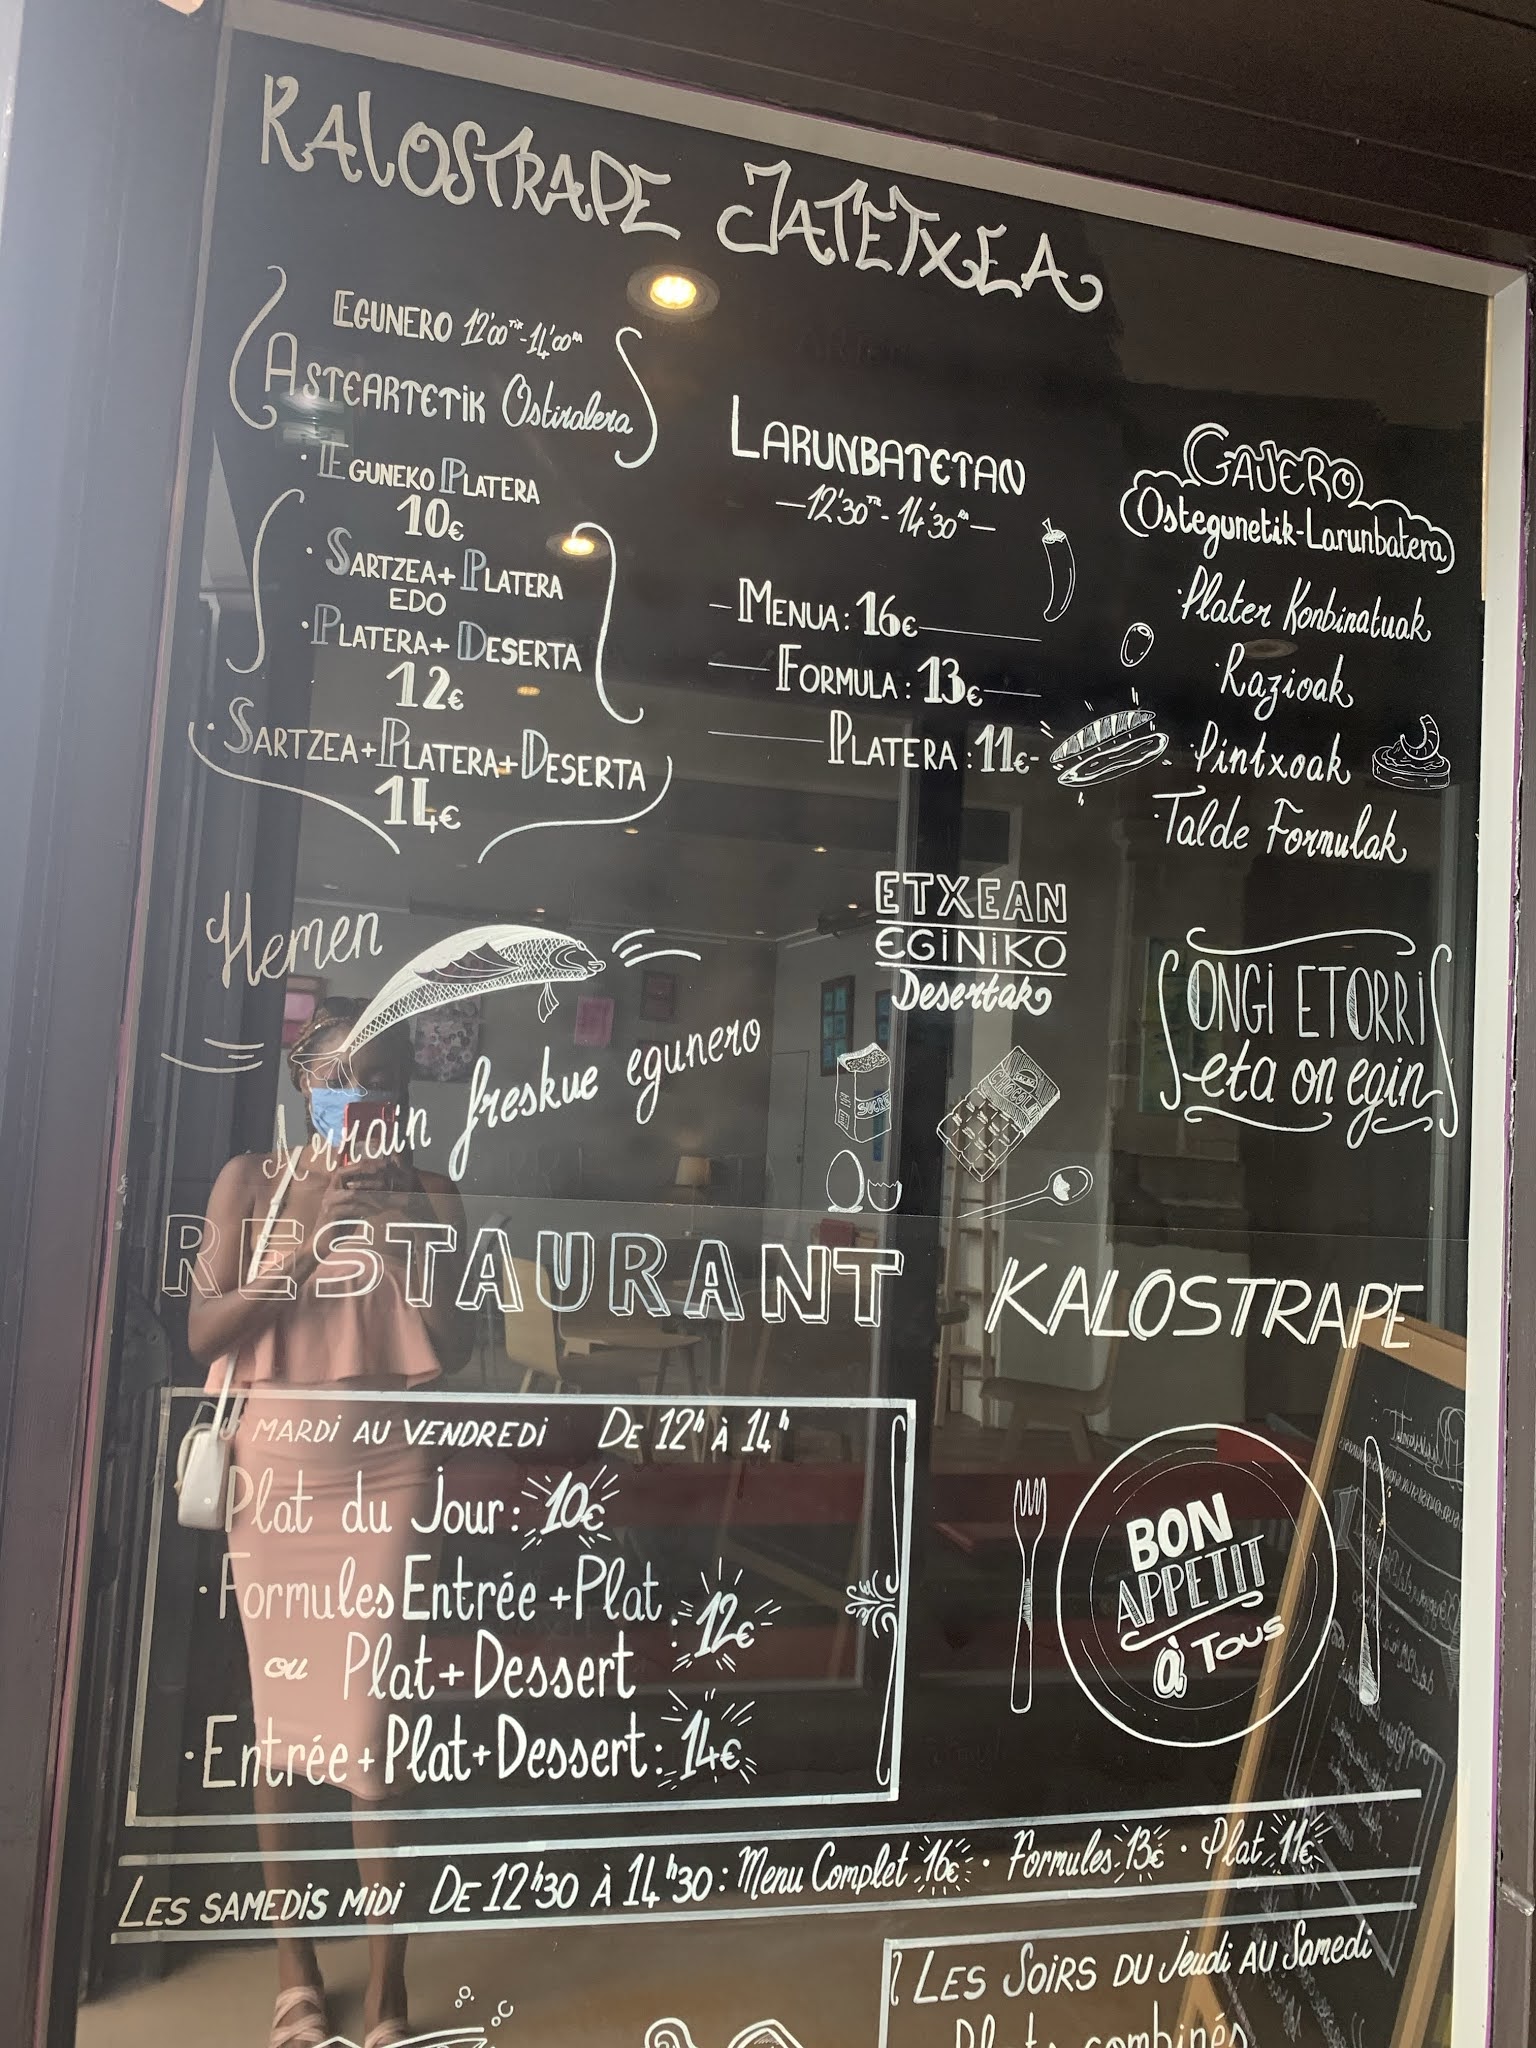 KALOSTRAPE JATETXEA
EGUNERO 12'00TIK-14'00RA
ASTEARTETIK Ostiralera
· EGUNEKO PLATERA
10€
· SARTZEA + PLATERA
EDO
· PLATERA + DESERTA
12€
· SARTZEA + PLATERA + DESERTA
14€
LARUNBATETAN
— 12'30TIK - 14'30RA —
- MENUA : 16€
FORMULA : 13€
PLATERA : 11€
GAUERO
Ostegunetik-Larunbatera
· Plater Konbinatuak
· Razioak
· Pintxoak
· Talde Formulak
Hemen
Arrain freskue egunero
ETXEAN
EGINIKO
Desertak
SUCRE
CHOCOLA
ONGI ETORRI
eta on egin
RESTAURANT KALOSTRAPE
DU MARDI AU VENDREDI DE 12h À 14h
Plat du Jour : 10€
· Formules Entrée + Plat
ou Plat + Dessert : 12€
· Entrée + Plat + Dessert : 14€
BON
APPETIT
à TOUS
LES SAMEDIS MIDI DE 12h30 À 14h30 : Menu Complet 16€ · Formules 13€ · Plat 11€
LES SOIRS DU Jeudi AU Samedi
Plats combinés